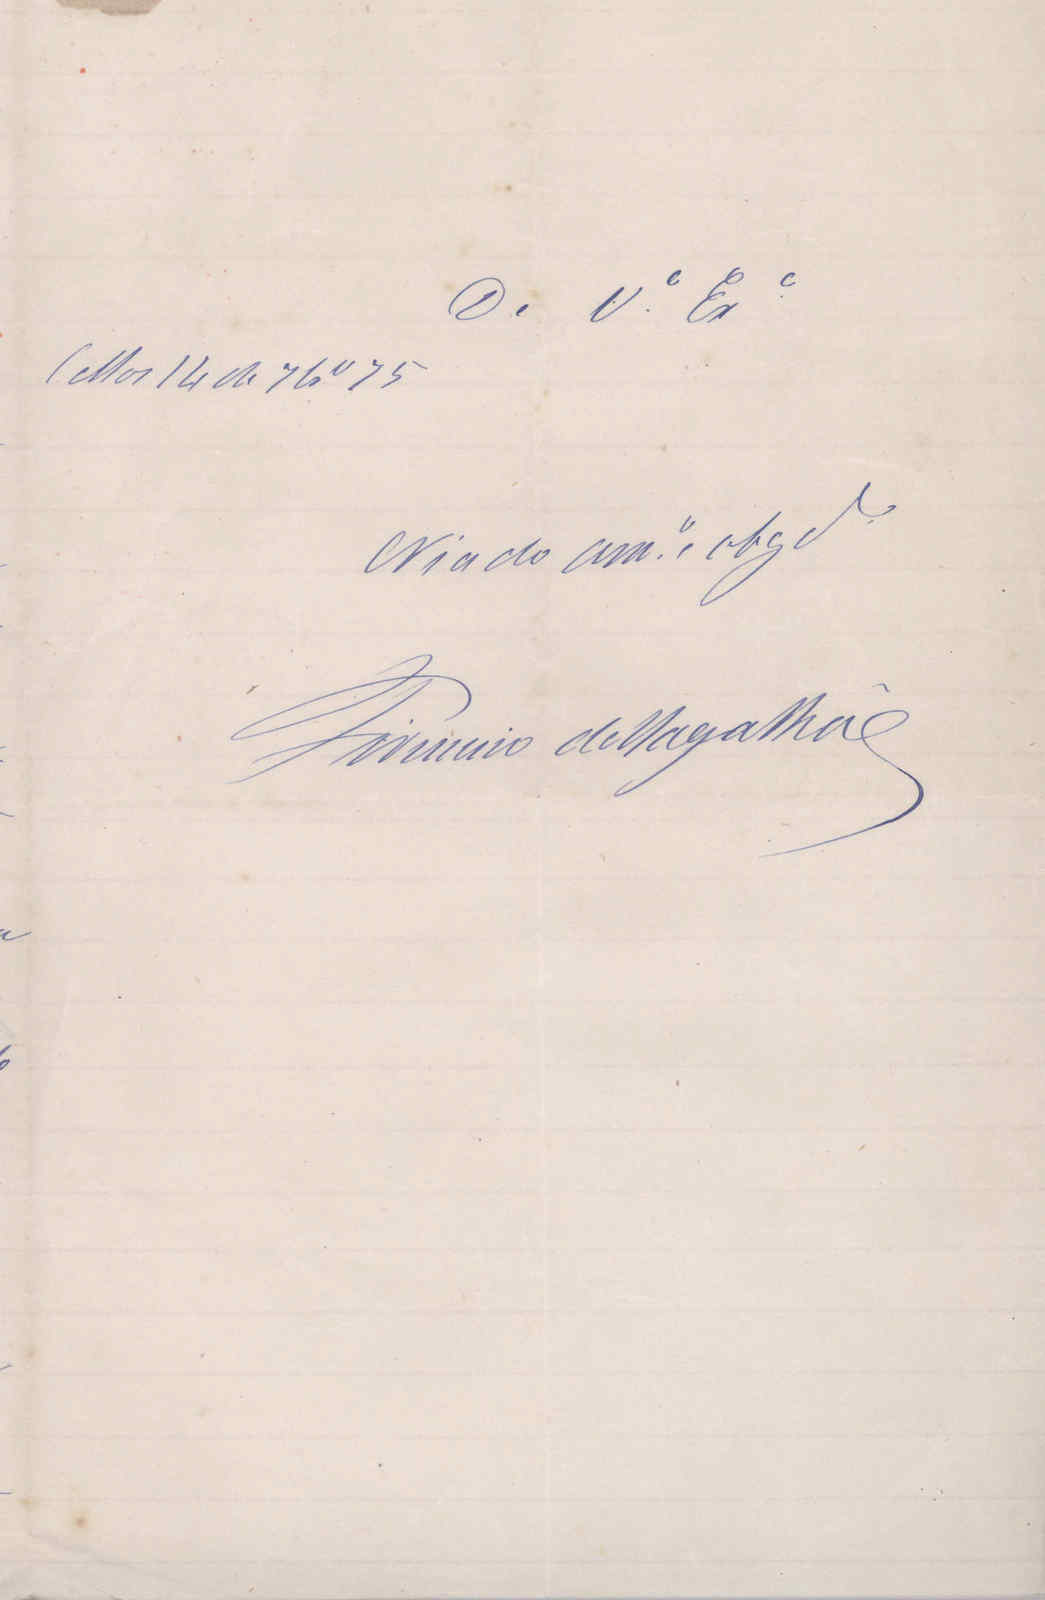 De V.ª Ex.ª
14 de 7br.º 75
Criado am.º e obgd.º
Firmino de Magalhães